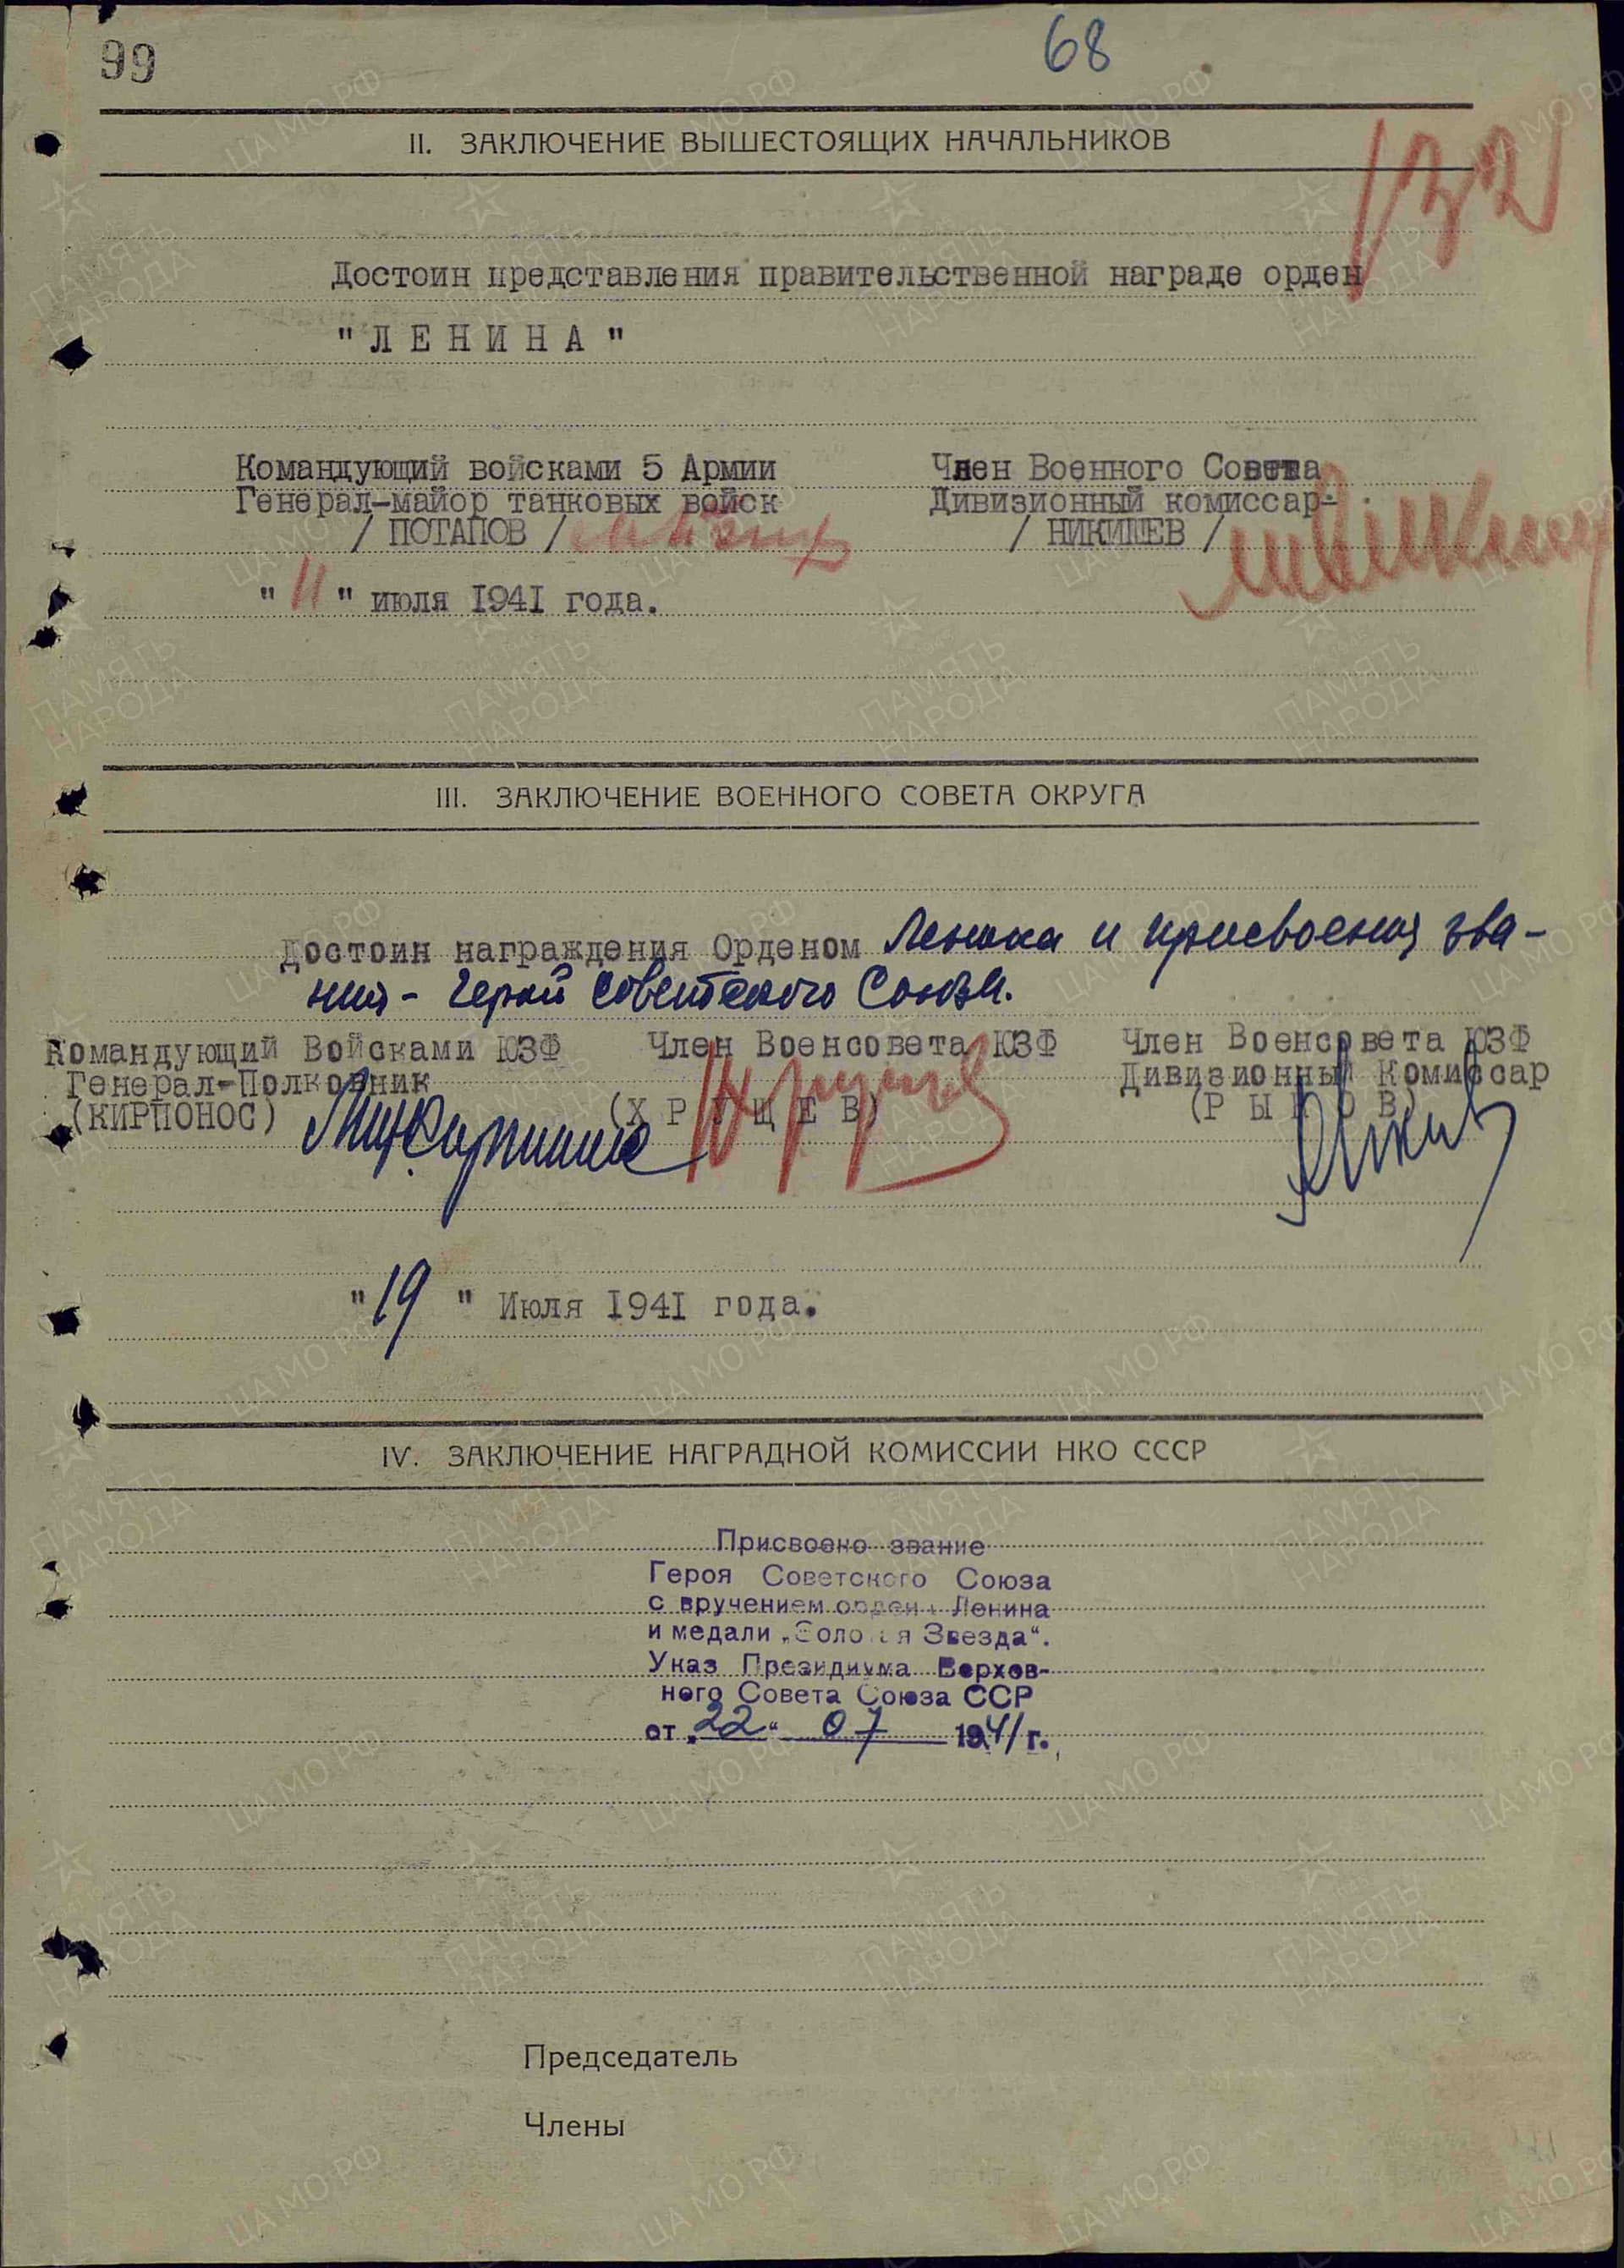 99
68
132
II. ЗАКЛЮЧЕНИЕ ВЫШЕСТОЯЩИХ НАЧАЛЬНИКОВ
Достоин представления правительственной награде орден
"ЛЕНИНА"
Командующий войсками 5 Армии
Генерал-майор танковых войск
/ ПОТАПОВ /
Член Военного Совета
Дивизионный комиссар-
/ НИКИШЕВ /
" 11 " июля 1941 года.
III. ЗАКЛЮЧЕНИЕ ВОЕННОГО СОВЕТА ОКРУГА
Достоин награждения Орденом Ленина и присвоения зва-
ния - Герой Советского Союза.
Командующий Войсками ЮЗФ
Генерал-Полковник
(КИРПОНОС)
Член Военсовета ЮЗФ
(ХРУЩЕВ)
Член Военсовета ЮЗФ
Дивизионный Комиссар
(РЫКОВ)
" 19 " Июля 1941 года.
IV. ЗАКЛЮЧЕНИЕ НАГРАДНОЙ КОМИССИИ НКО СССР
Присвоено звание
Героя Советского Союза
с вручением ордена Ленина
и медали „Золотая Звезда".
Указ Президиума Верхов-
ного Совета Союза ССР
от „22" 07 1941 г.
Председатель
Члены